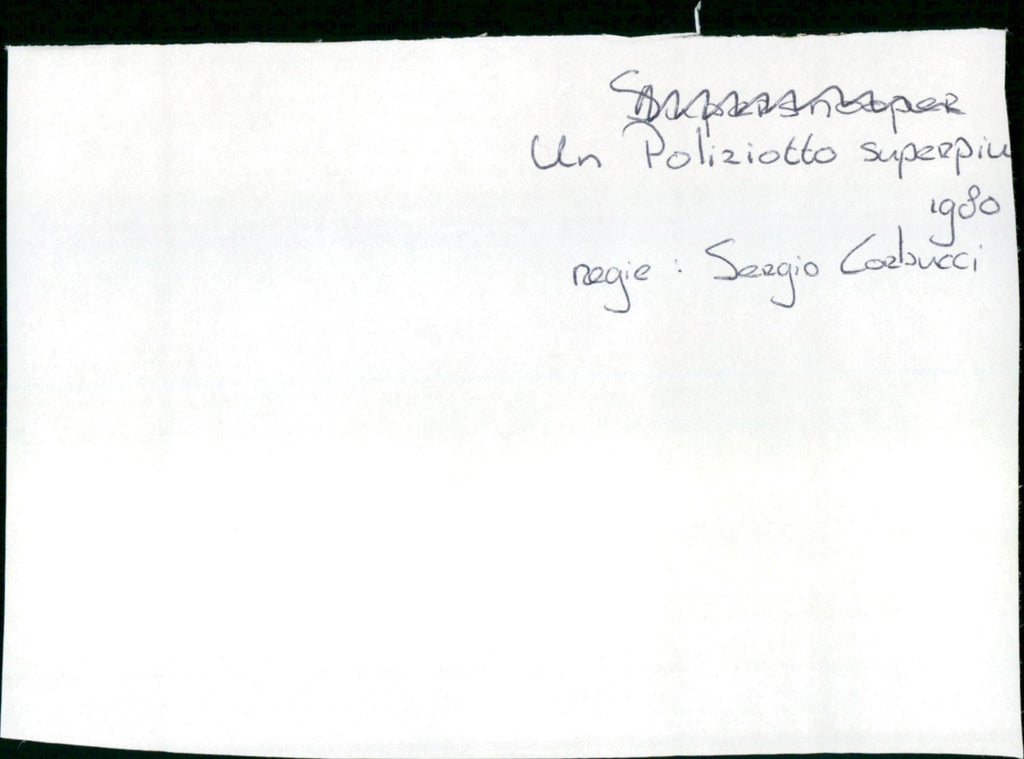 Un Poliziotto superpiu
1980
regie : Sergio Corbucci